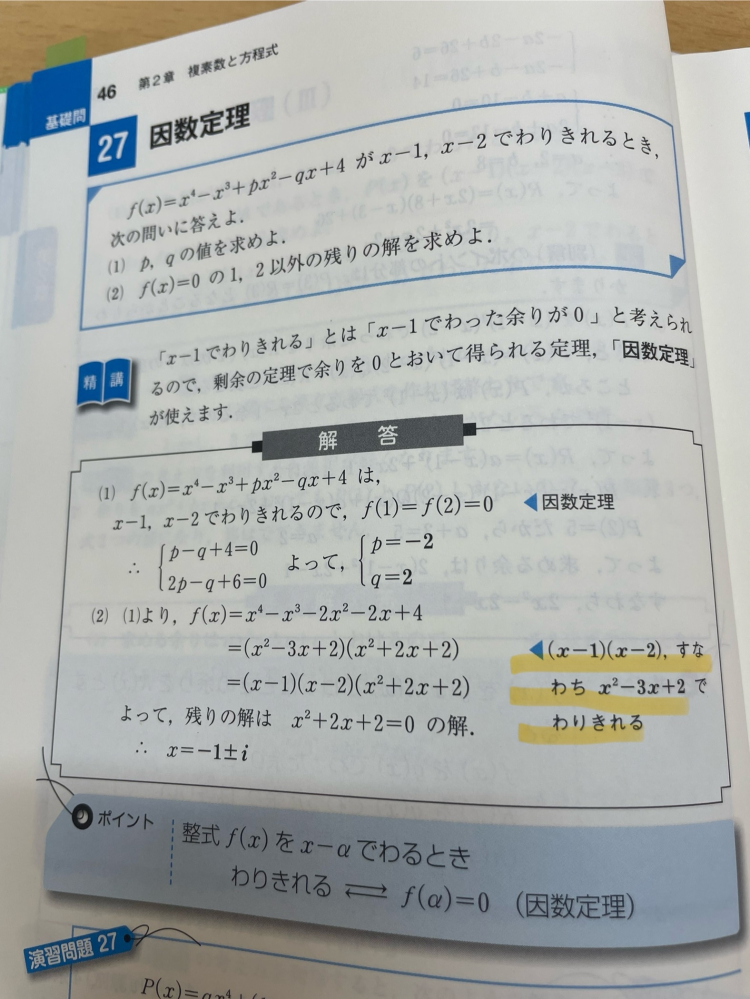 46 第2章 複素数と方程式
基礎問
27 因数定理
f(x)=x⁴−x³+px²−qx+4 が x−1, x−2 でわりきれるとき,
次の問いに答えよ.
(1) p, q の値を求めよ.
(2) f(x)=0 の 1, 2 以外の残りの解を求めよ.
精講
「x−1でわりきれる」とは「x−1でわった余りが0」と考えられ
るので, 剰余の定理で余りを0とおいて得られる定理,「因数定理」
が使えます.
解 答
(1) f(x)=x⁴−x³+px²−qx+4 は,
x−1, x−2 でわりきれるので, f(1)=f(2)=0 ◀因数定理
∴ {p−q+4=0 よって, {p=−2
2p−q+6=0 q=2
(2) (1)より, f(x)=x⁴−x³−2x²−2x+4
=(x²−3x+2)(x²+2x+2) ◀(x−1)(x−2), すな
=(x−1)(x−2)(x²+2x+2) わち x²−3x+2 で
よって, 残りの解は x²+2x+2=0 の解. わりきれる
∴ x=−1±i
ポイント
整式 f(x) を x−α でわるとき
わりきれる ⇄ f(α)=0 (因数定理)
演習問題 27